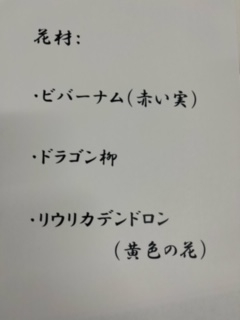 花材:
・ビバーナム(赤い実)
・ドラゴン柳
・リウリカデンドロン
(黄色の花)